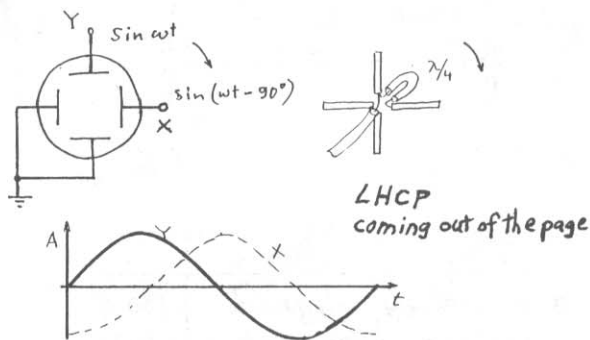 Y
sin ωt
sin (ωt - 90°)
X
λ/4
LHCP
coming out of the page
A
Y
X
t